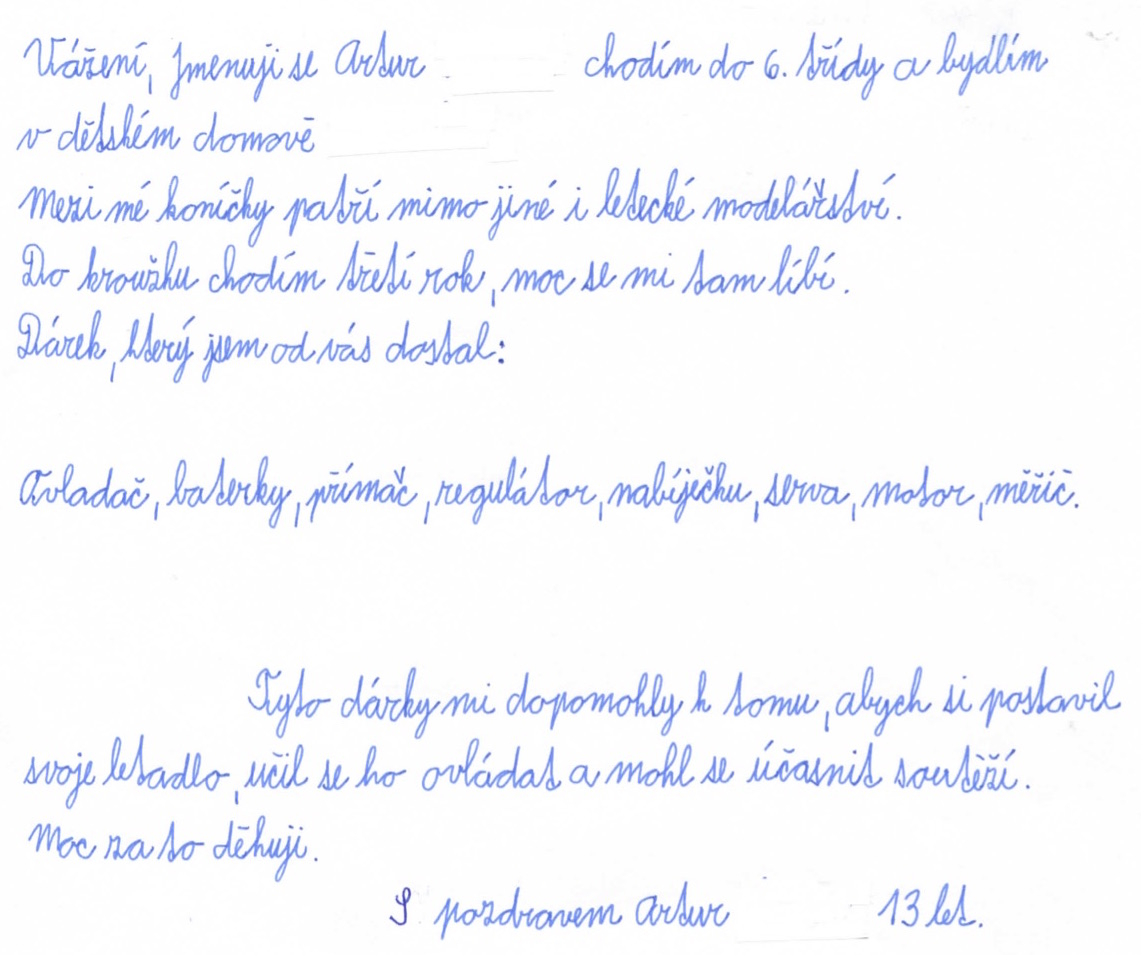 Vážení, jmenuji se Artur chodím do 6. třídy a bydlím
v dětském domově
Mezi mé koníčky patří mimo jiné i letecké modelářství.
Do kroužku chodím třetí rok, moc se mi tam líbí.
Dárek, který jsem od vás dostal:
Ovladač, baterky, přímač, regulátor, nabíječku, serva, motor, měřič.
Tyto dárky mi dopomohly k tomu, abych si postavil
svoje letadlo, učil se ho ovládat a mohl se účasnit soutěží.
Moc za to děkuji.
S pozdravem Artur 13 let.